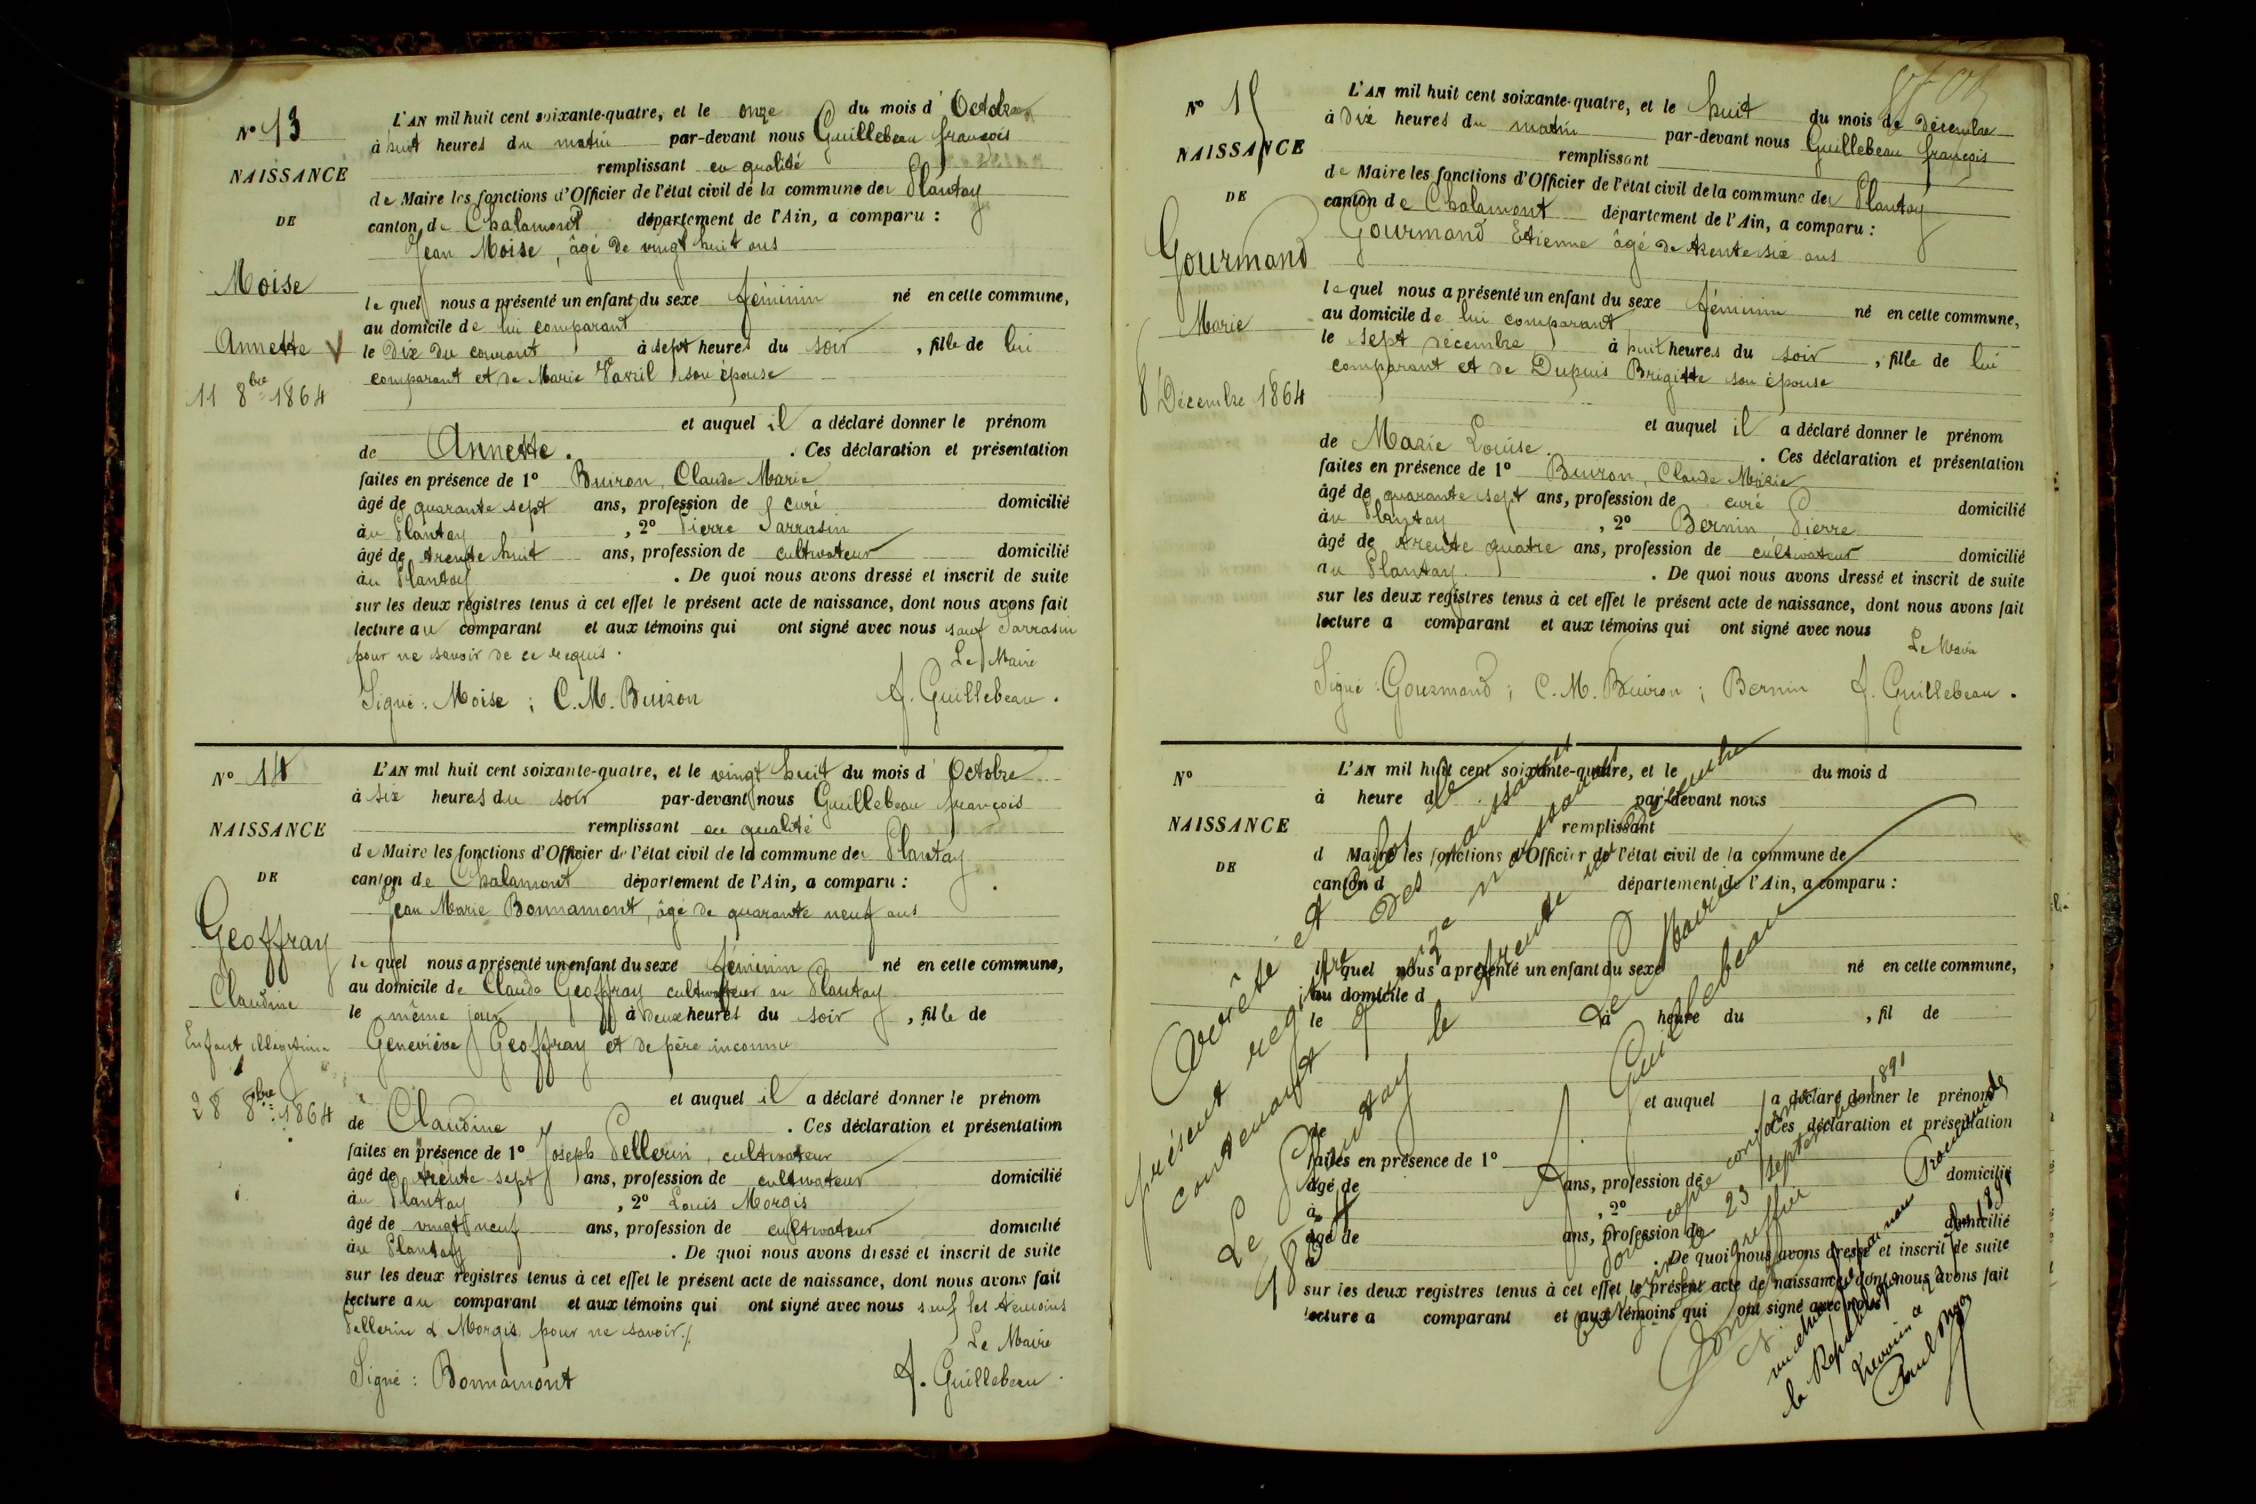 L'AN mil huit cent soixante-quatre, et le onze du mois d'Octobre
N° 13
à huit heures du matin par-devant nous Guillebeau françois
NAISSANCE
remplissant en qualité
de Maire les fonctions d'Officier de l'état civil de la commune du Plantay
DE
canton de Chalamont département de l'Ain, a comparu :
Jean Moise, âgé de vingt huit ans
Moise
le quel nous a présenté un enfant du sexe féminin né en cette commune,
au domicile de lui comparant
Annette
le dix du courant à sept heures du soir, fille de lui
comparant et de Marie son épouse
11 8bre 1864
et auquel il a déclaré donner le prénom
de Annette. . Ces déclaration et présentation
faites en présence de 1° Buiron, Claude Marie
âgé de quarante sept ans, profession de curé domicilié
au Plantay, 2° Pierre Sarrasin
âgé de trente huit ans, profession de cultivateur domicilié
au Plantay. De quoi nous avons dressé et inscrit de suite
sur les deux registres tenus à cet effet le présent acte de naissance, dont nous avons fait
lecture au comparant et aux témoins qui ont signé avec nous sauf Sarrasin
pour ne savoir de ce requis.
Le Maire
Signé : Moise ; C. M. Buiron f. Guillebeau.
N° 14
L'AN mil huit cent soixante-quatre, et le vingt huit du mois d'Octobre
à six heures du soir par-devant nous Guillebeau françois
NAISSANCE
remplissant en qualité
de Maire les fonctions d'Officier de l'état civil de la commune du Plantay
DE
canton de Chalamont département de l'Ain, a comparu :
Jean Marie Bonnamont, âgé de quarante neuf ans
Geoffray
le quel nous a présenté un enfant du sexe féminin né en cette commune,
au domicile de Claude Geoffray cultivateur au Plantay
Claudine
le même jour à deux heures du soir, fille de
Enfant illégitime
Geneviève Geoffray et de père inconnu
28 8bre 1864
et auquel il a déclaré donner le prénom
de Claudine . Ces déclaration et présentation
faites en présence de 1° Joseph Pellerin, cultivateur
âgé de trente sept ans, profession de cultivateur domicilié
au Plantay, 2° Louis Morgis
âgé de vingt neuf ans, profession de cultivateur domicilié
au Plantay. De quoi nous avons dressé et inscrit de suite
sur les deux registres tenus à cet effet le présent acte de naissance, dont nous avons fait
lecture au comparant et aux témoins qui ont signé avec nous sauf les témoins
Pellerin & Morgis pour ne savoir./.
Le Maire
Signé : Bonnamont f. Guillebeau.
N° 15
L'AN mil huit cent soixante-quatre, et le huit du mois de décembre
à dix heures du matin par-devant nous Guillebeau françois
NAISSANCE
remplissant
de Maire les fonctions d'Officier de l'état civil de la commune du Plantay
DE
canton de Chalamont département de l'Ain, a comparu :
Gourmand Etienne âgé de trente six ans
Gourmand
le quel nous a présenté un enfant du sexe féminin né en cette commune,
au domicile de lui comparant
Marie
le sept décembre à huit heures du soir, fille de lui
comparant et de Dupuis Brigitte son épouse
8 Décembre 1864
et auquel il a déclaré donner le prénom
de Marie Louise. . Ces déclaration et présentation
faites en présence de 1° Buiron, Claude Marie
âgé de quarante sept ans, profession de curé domicilié
au Plantay, 2° Bernin, Pierre
âgé de trente quatre ans, profession de cultivateur domicilié
au Plantay. De quoi nous avons dressé et inscrit de suite
sur les deux registres tenus à cet effet le présent acte de naissance, dont nous avons fait
lecture a comparant et aux témoins qui ont signé avec nous
Le Maire
Signé : Gourmand ; C. M. Buiron ; Bernin f. Guillebeau.
N°
L'AN mil huit cent soixante-quatre, et le du mois d
à heure d par-devant nous
NAISSANCE
remplissant
d Maire les fonctions d'Officier de l'état civil de la commune de
DE
canton d département de l'Ain, a comparu :
l quel nous a présenté un enfant du sexe né en cette commune,
au domicile d
le à heure du , fil de
et auquel a déclaré donner le prénom
de . Ces déclaration et présentation
faites en présence de 1°
âgé de ans, profession de domicilié
à , 2°
âgé de ans, profession de domicilié
à . De quoi nous avons dressé et inscrit de suite
sur les deux registres tenus à cet effet le présent acte de naissance, dont nous avons fait
lecture a comparant et aux témoins qui ont signé avec nous
Arrêté et clos le
présent registre des naissances
contenant quinze naissances
Le Plantay le trente un décembre
1864
Le Maire
f. Guillebeau
Pour copie conforme
23 septembre 1891
greffier